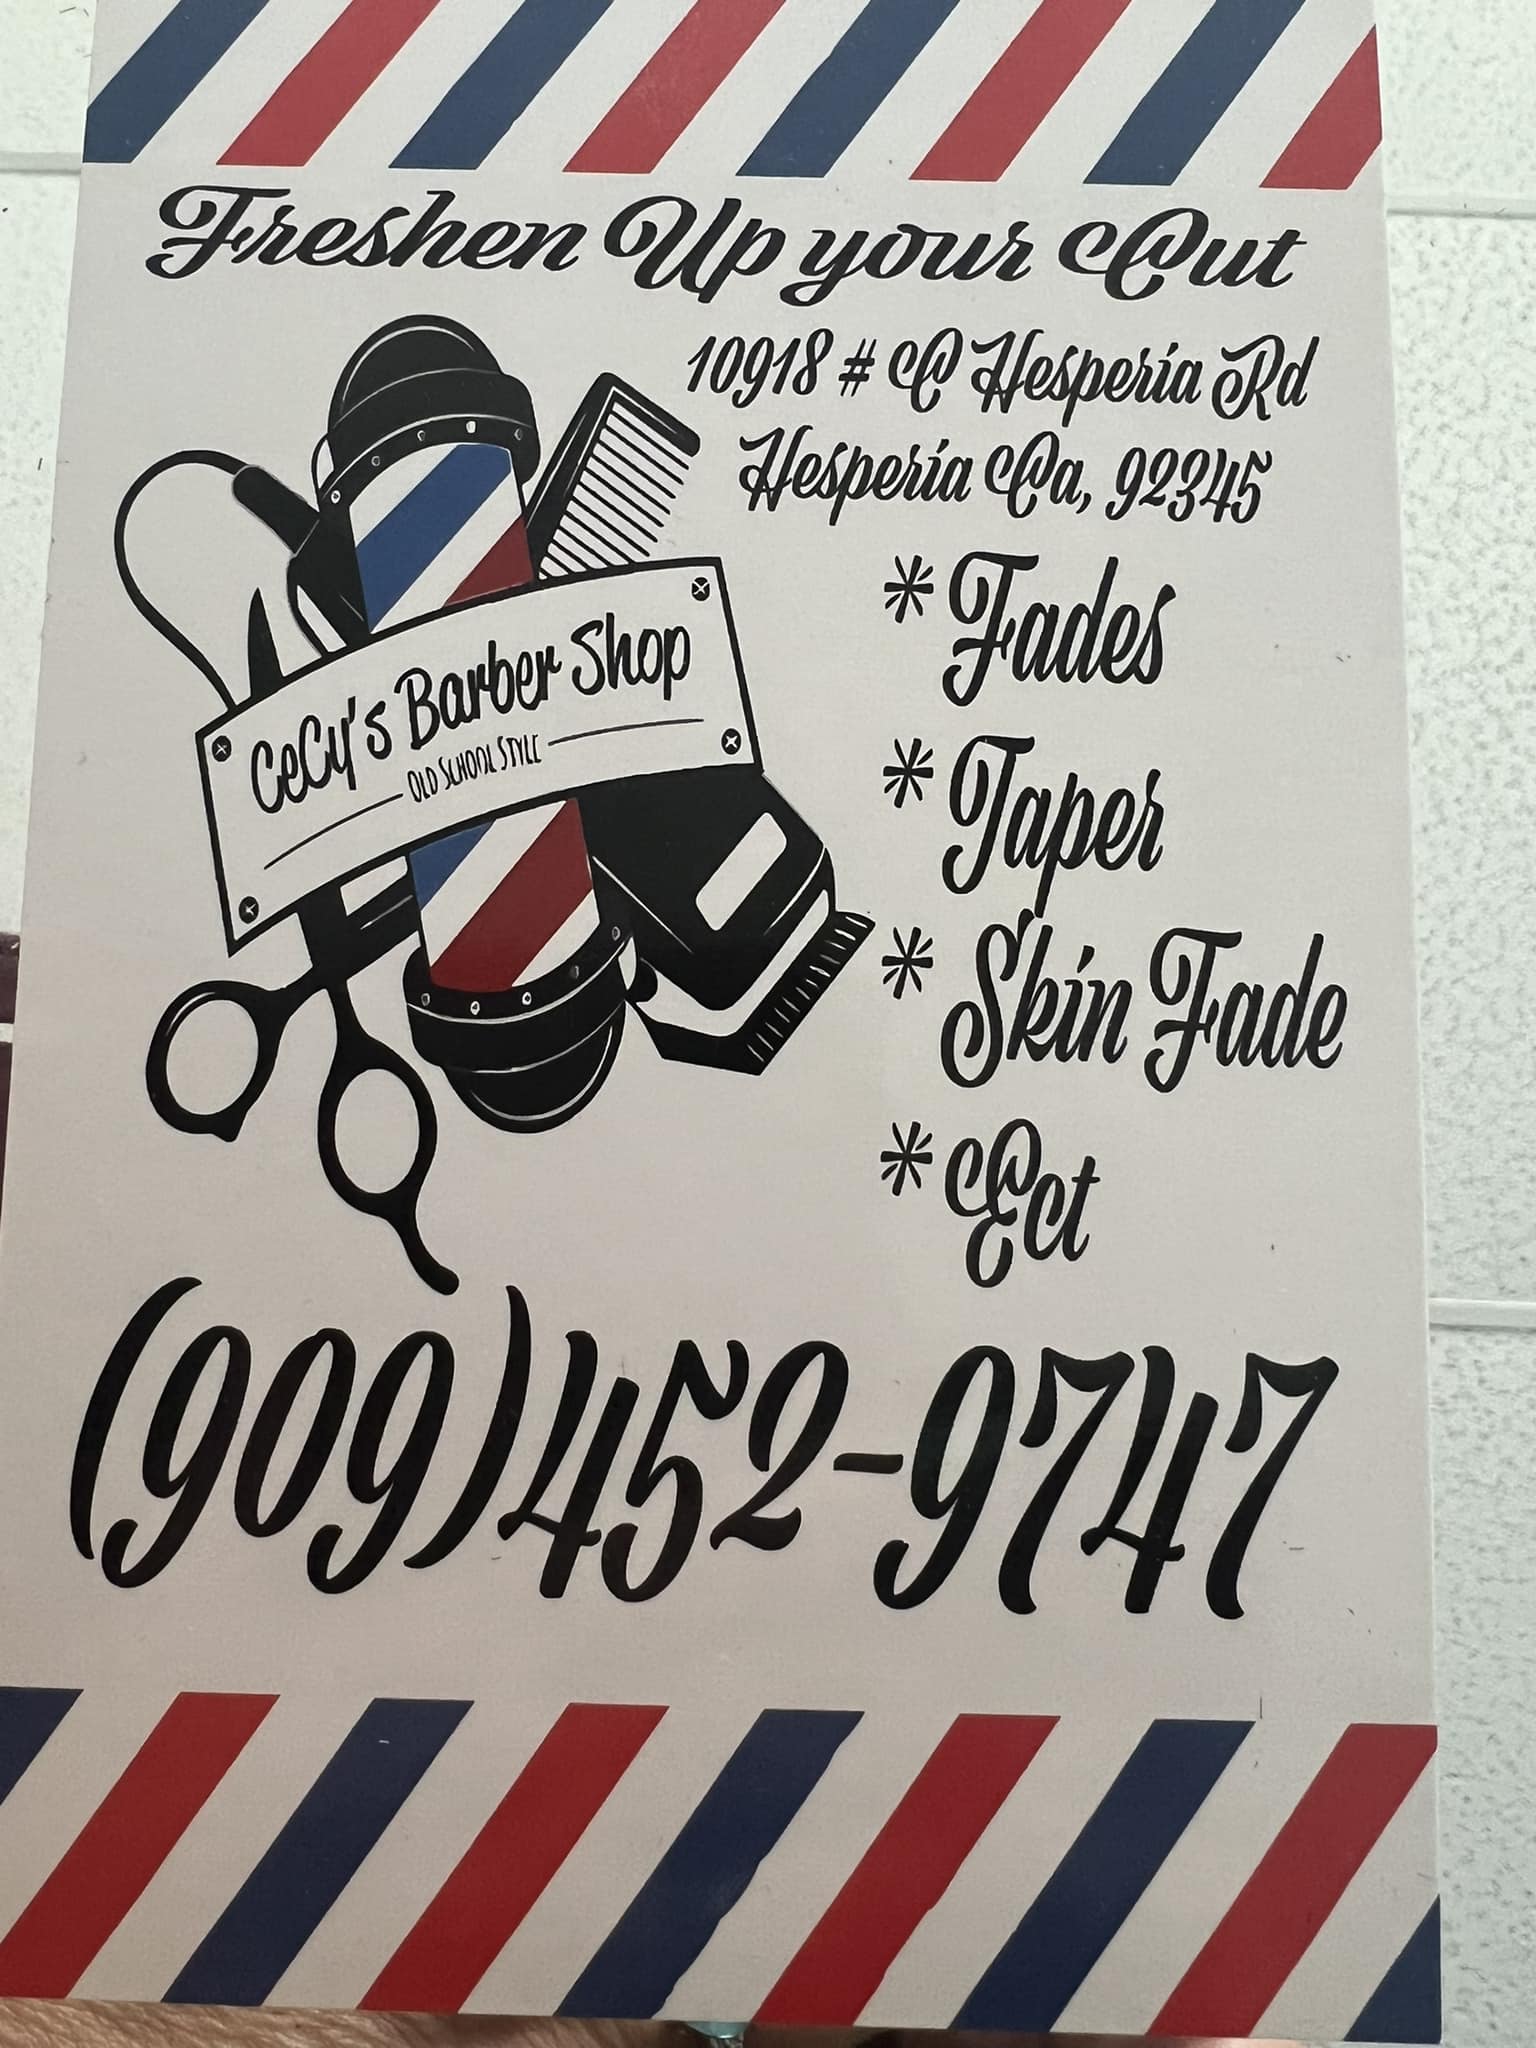 Freshen Up your Cut
10918 # C Hesperia Rd
Hesperia Ca, 92345
CeCy's Barber Shop
OLD SCHOOL STYLE
* Fades
* Taper
* Skin Fade
* Ect
(909)452-9747